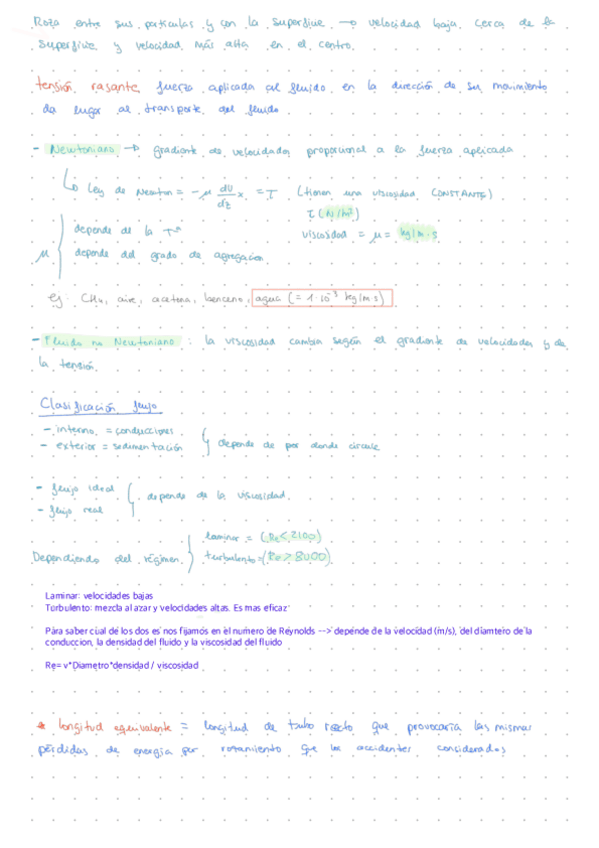 Roza entre sus partículas y con la superficie → velocidad baja cerca de la
superficie y velocidad más alta en el centro.
tensión rasante fuerza aplicada al fluido en la dirección de su movimiento
da lugar al transporte del fluido.
- Newtoniano → gradiente de velocidades proporcional a la fuerza aplicada
↳ Ley de Newton = -μ dv/dz x = τ (tienen una viscosidad CONSTANTE)
τ (N/m²)
μ { depende de la Tª
viscosidad = μ = kg/m·s
depende del grado de agregación
ej: CH4, aire, acetona, benceno, agua (= 1·10⁻³ kg/m s)
- Fluido no Newtoniano: la viscosidad cambia según el gradiente de velocidades y de
la tensión.
Clasificación flujo
- interno = conducciones
- exterior = sedimentación } depende de por donde circule
- flujo ideal
- flujo real } depende de la viscosidad
Dependiendo del régimen } laminar = (Re < 2100)
turbulento = (Re > 8000)
Laminar: velocidades bajas
Torbulento: mezcla al azar y velocidades altas. Es mas eficaz
Para saber cual de los dos es nos fijamos en el numero de Reynolds --> depende de la velocidad (m/s), del diamtero de la
conduccion, la densidad del fluido y la viscosidad del fluido
Re= v*Diametro*densidad / viscosidad
* longitud equivalente = longitud de tubo recto que provocaría las mismas
pérdidas de energía por rozamiento que los accidentes considerados